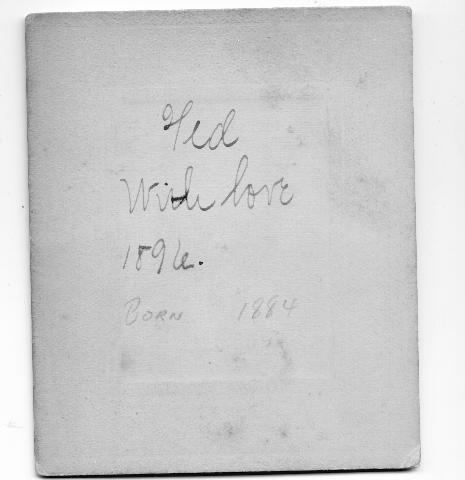 Ted
With love
1896.
Born 1884